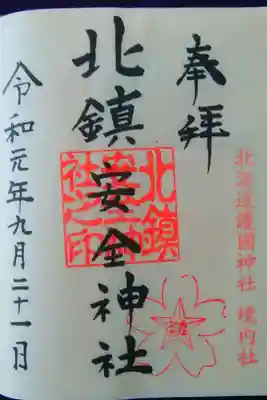 奉拝
北海道護國神社 境内社
北鎮安全神社
北鎮安全社之印
令和元年九月二十一日